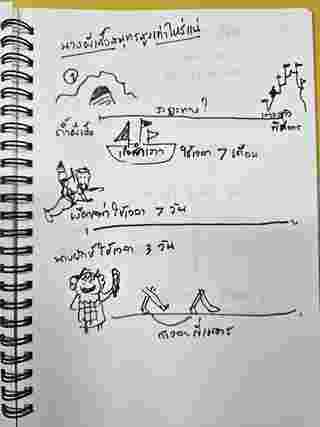 นางผีเสื้อสมุทรสูงเท่าไหร่แน่
ระยะทาง?
ถ้ำผีเสื้อ
เกาะแก้วพิสดาร
เรือสำเภา ใช้เวลา 7 เดือน
เงือกพาว่ายใช้เวลา 7 วัน
นางยักษ์ใช้เวลา 3 วัน
ก้าวละกี่เมตร